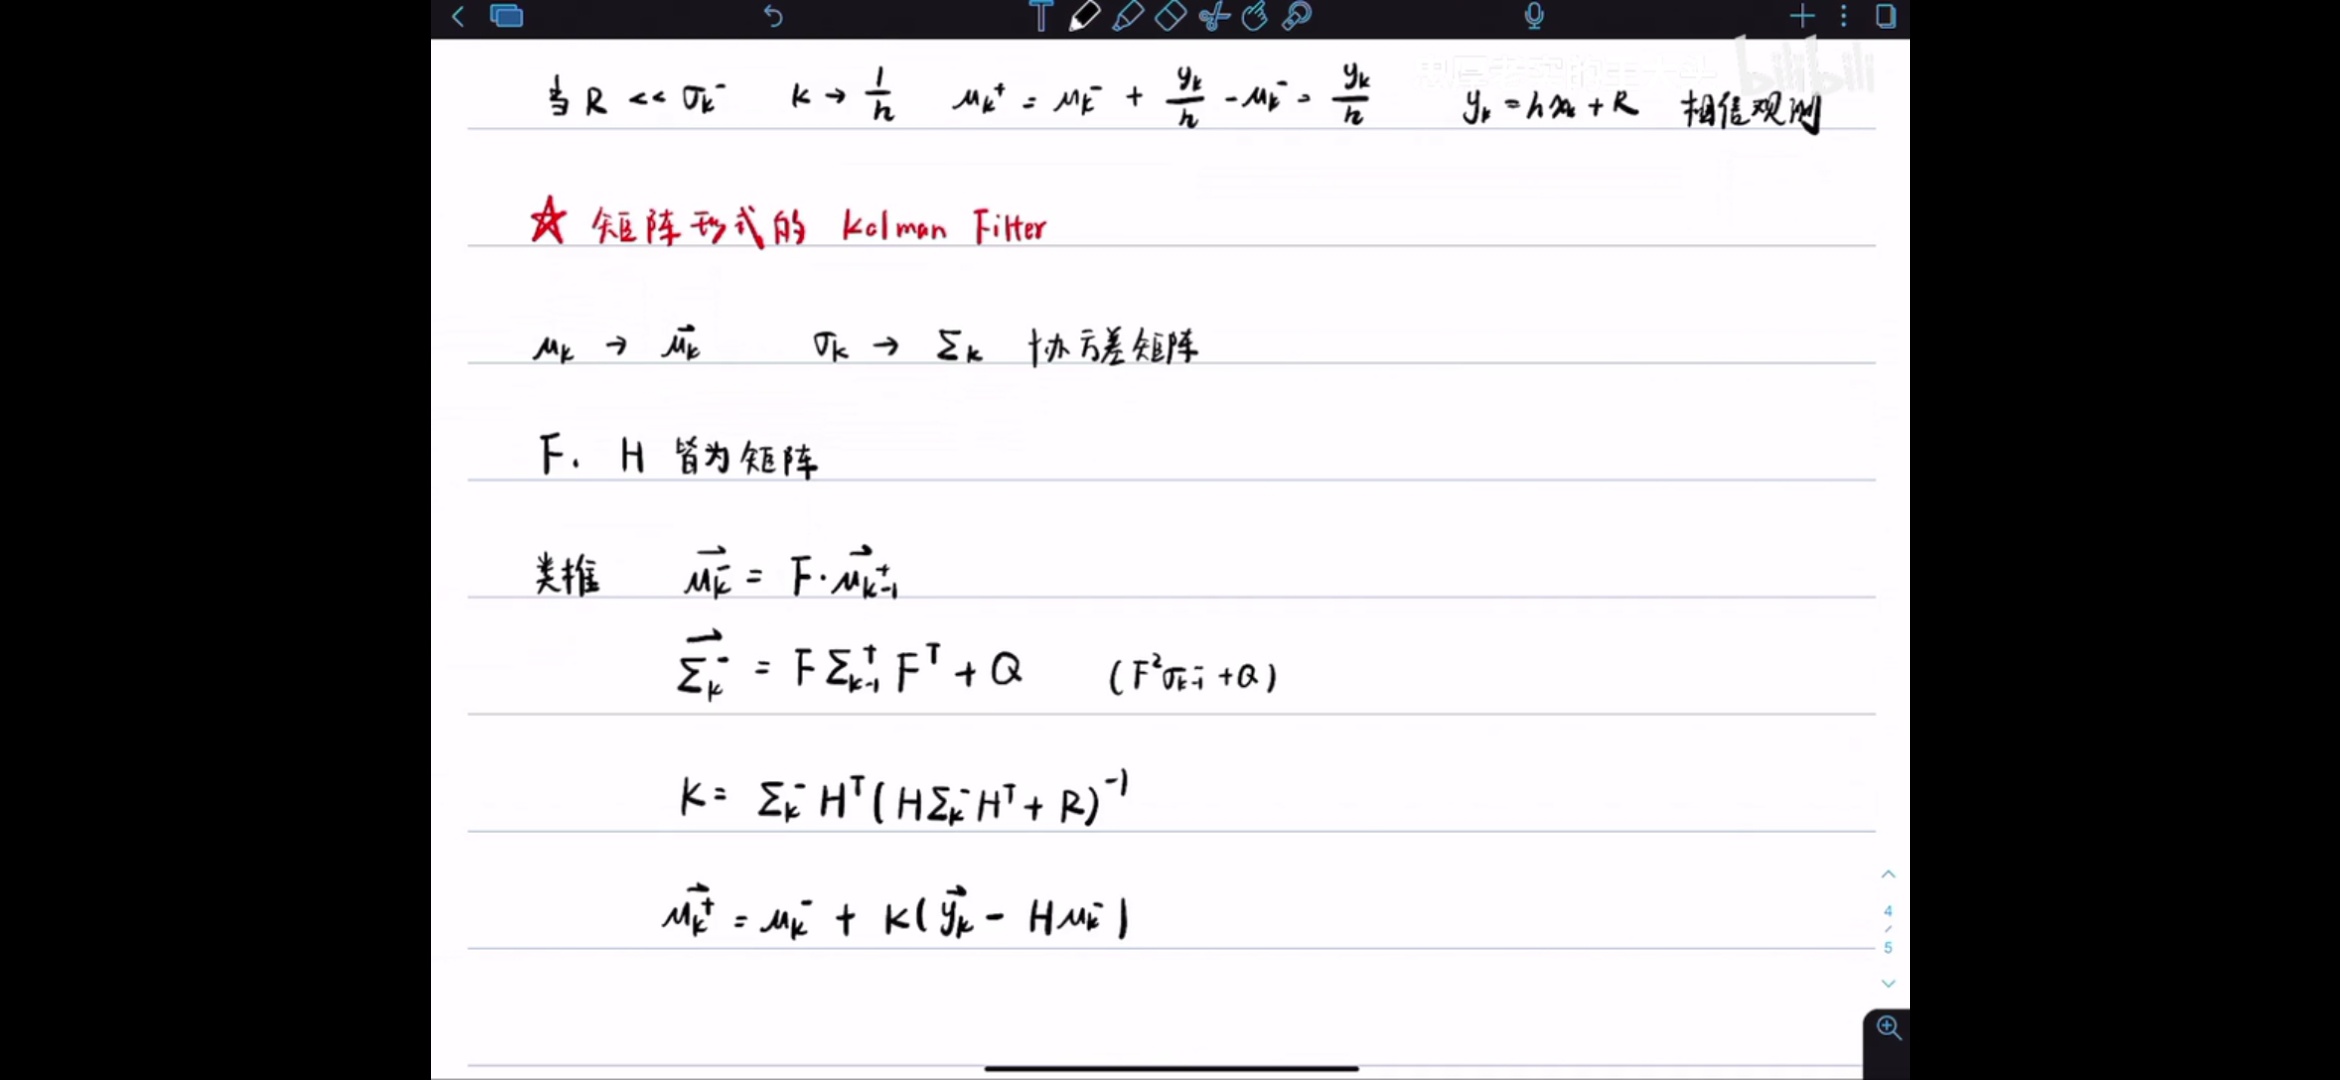 当 R << σₖ⁻ K → 1/h μₖ⁺ = μₖ⁻ + yₖ/h - μₖ⁻ = yₖ/h yₖ = hxₖ + R 相信观测
bilibili
☆ 矩阵形式的 Kalman Filter
μₖ → μ⃗ₖ σₖ → Σₖ 协方差矩阵
F. H 皆为矩阵
类推 μ⃗ₖ⁻ = F·μ⃗ₖ₋₁⁺
Σ⃗ₖ⁻ = FΣₖ₋₁⁺Fᵀ + Q (F²σₖ₋₁⁻ + Q)
K = Σₖ⁻Hᵀ(HΣₖ⁻Hᵀ + R)⁻¹
μ⃗ₖ⁺ = μₖ⁻ + K(y⃗ₖ - Hμₖ⁻)
4
/
5